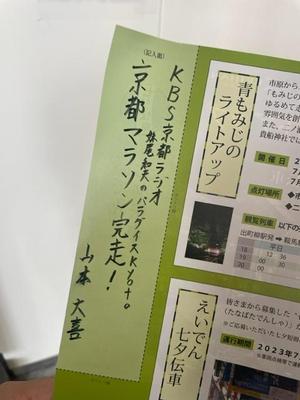 (記入欄)
KBS京都ラジオ
梅尾和夫のパラダイスkyoto。
京都マラソン完走!
山本 大喜
青もみじの
ライトアップ
市原から
「もみじの
ゆるめて走
雰囲気を創
また、二ノ
貴船神社で
開催日
点灯場所
観覧列車 以下の
出町柳駅発 ➡ 鞍馬
平日
18 12 36
19 00
20 00 30
えいでん
七夕伝車
皆さまから募集した
(たなばたでんしゃ)」
※ご応募いただいた七夕短冊
運行期間 2023年7